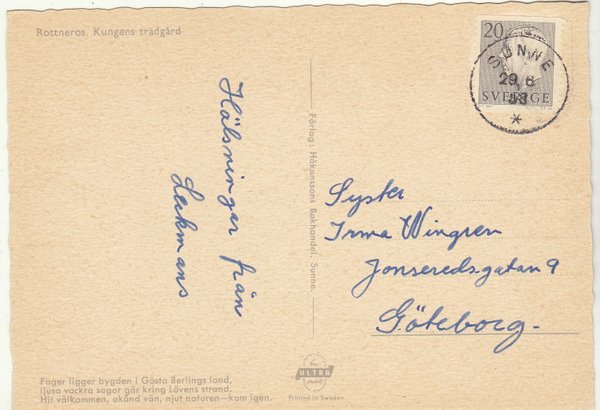 Rottneros. Kungens trädgård
Hälsningar från
Leekmans
Förlag: Håkanssons Bokhandel, Sunne.
20
SVERIGE
SUNNE
29.6
53
Syster
Irma Wingren
Jonseredsgatan 9
Göteborg.
Fager ligger bygden i Gösta Berlings land,
ljusa vackra sagor går kring Lövens strand.
Hit välkommen, okänd vän, njut naturen—kom igen.
ULTRA
Printed in Sweden